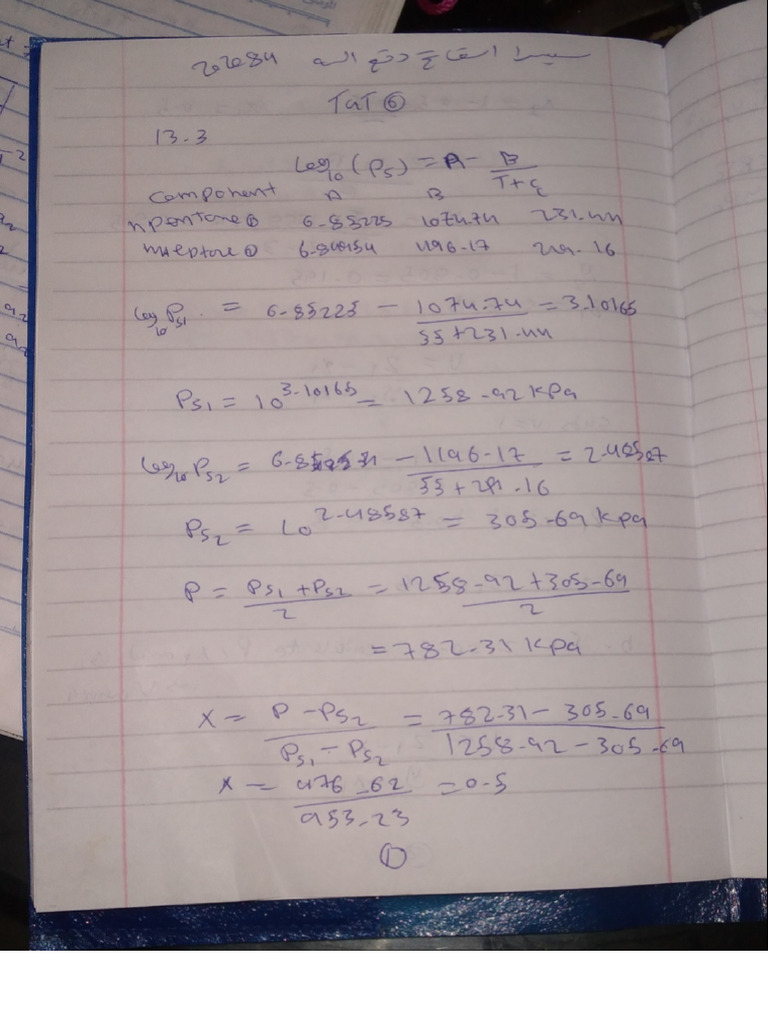 TUT ⑥
13.3
log₁₀(Ps) = A - B/(T+C)
component A B
npentane ① 6.85225 1074.74 231.44
nheptane ② 1196.17 219.16
log₁₀ Ps₁ = 6.85225 - 1074.74/(55+231.44) = 3.10165
Ps₁ = 10^3.10165 = 1258.92 kPa
log₁₀ Ps₂ = - 1196.17/(55+219.16) = 2.48587
Ps₂ = 10^2.48587 = 305.69 kpa
P = (Ps₁ + Ps₂)/2 = (1258.92 + 305.69)/2
= 782.31 kpa
X = (P - Ps₂)/(Ps₁ - Ps₂) = (782.31 - 305.69)/(1258.92 - 305.69)
X = 476.62/953.23 = 0.5
①